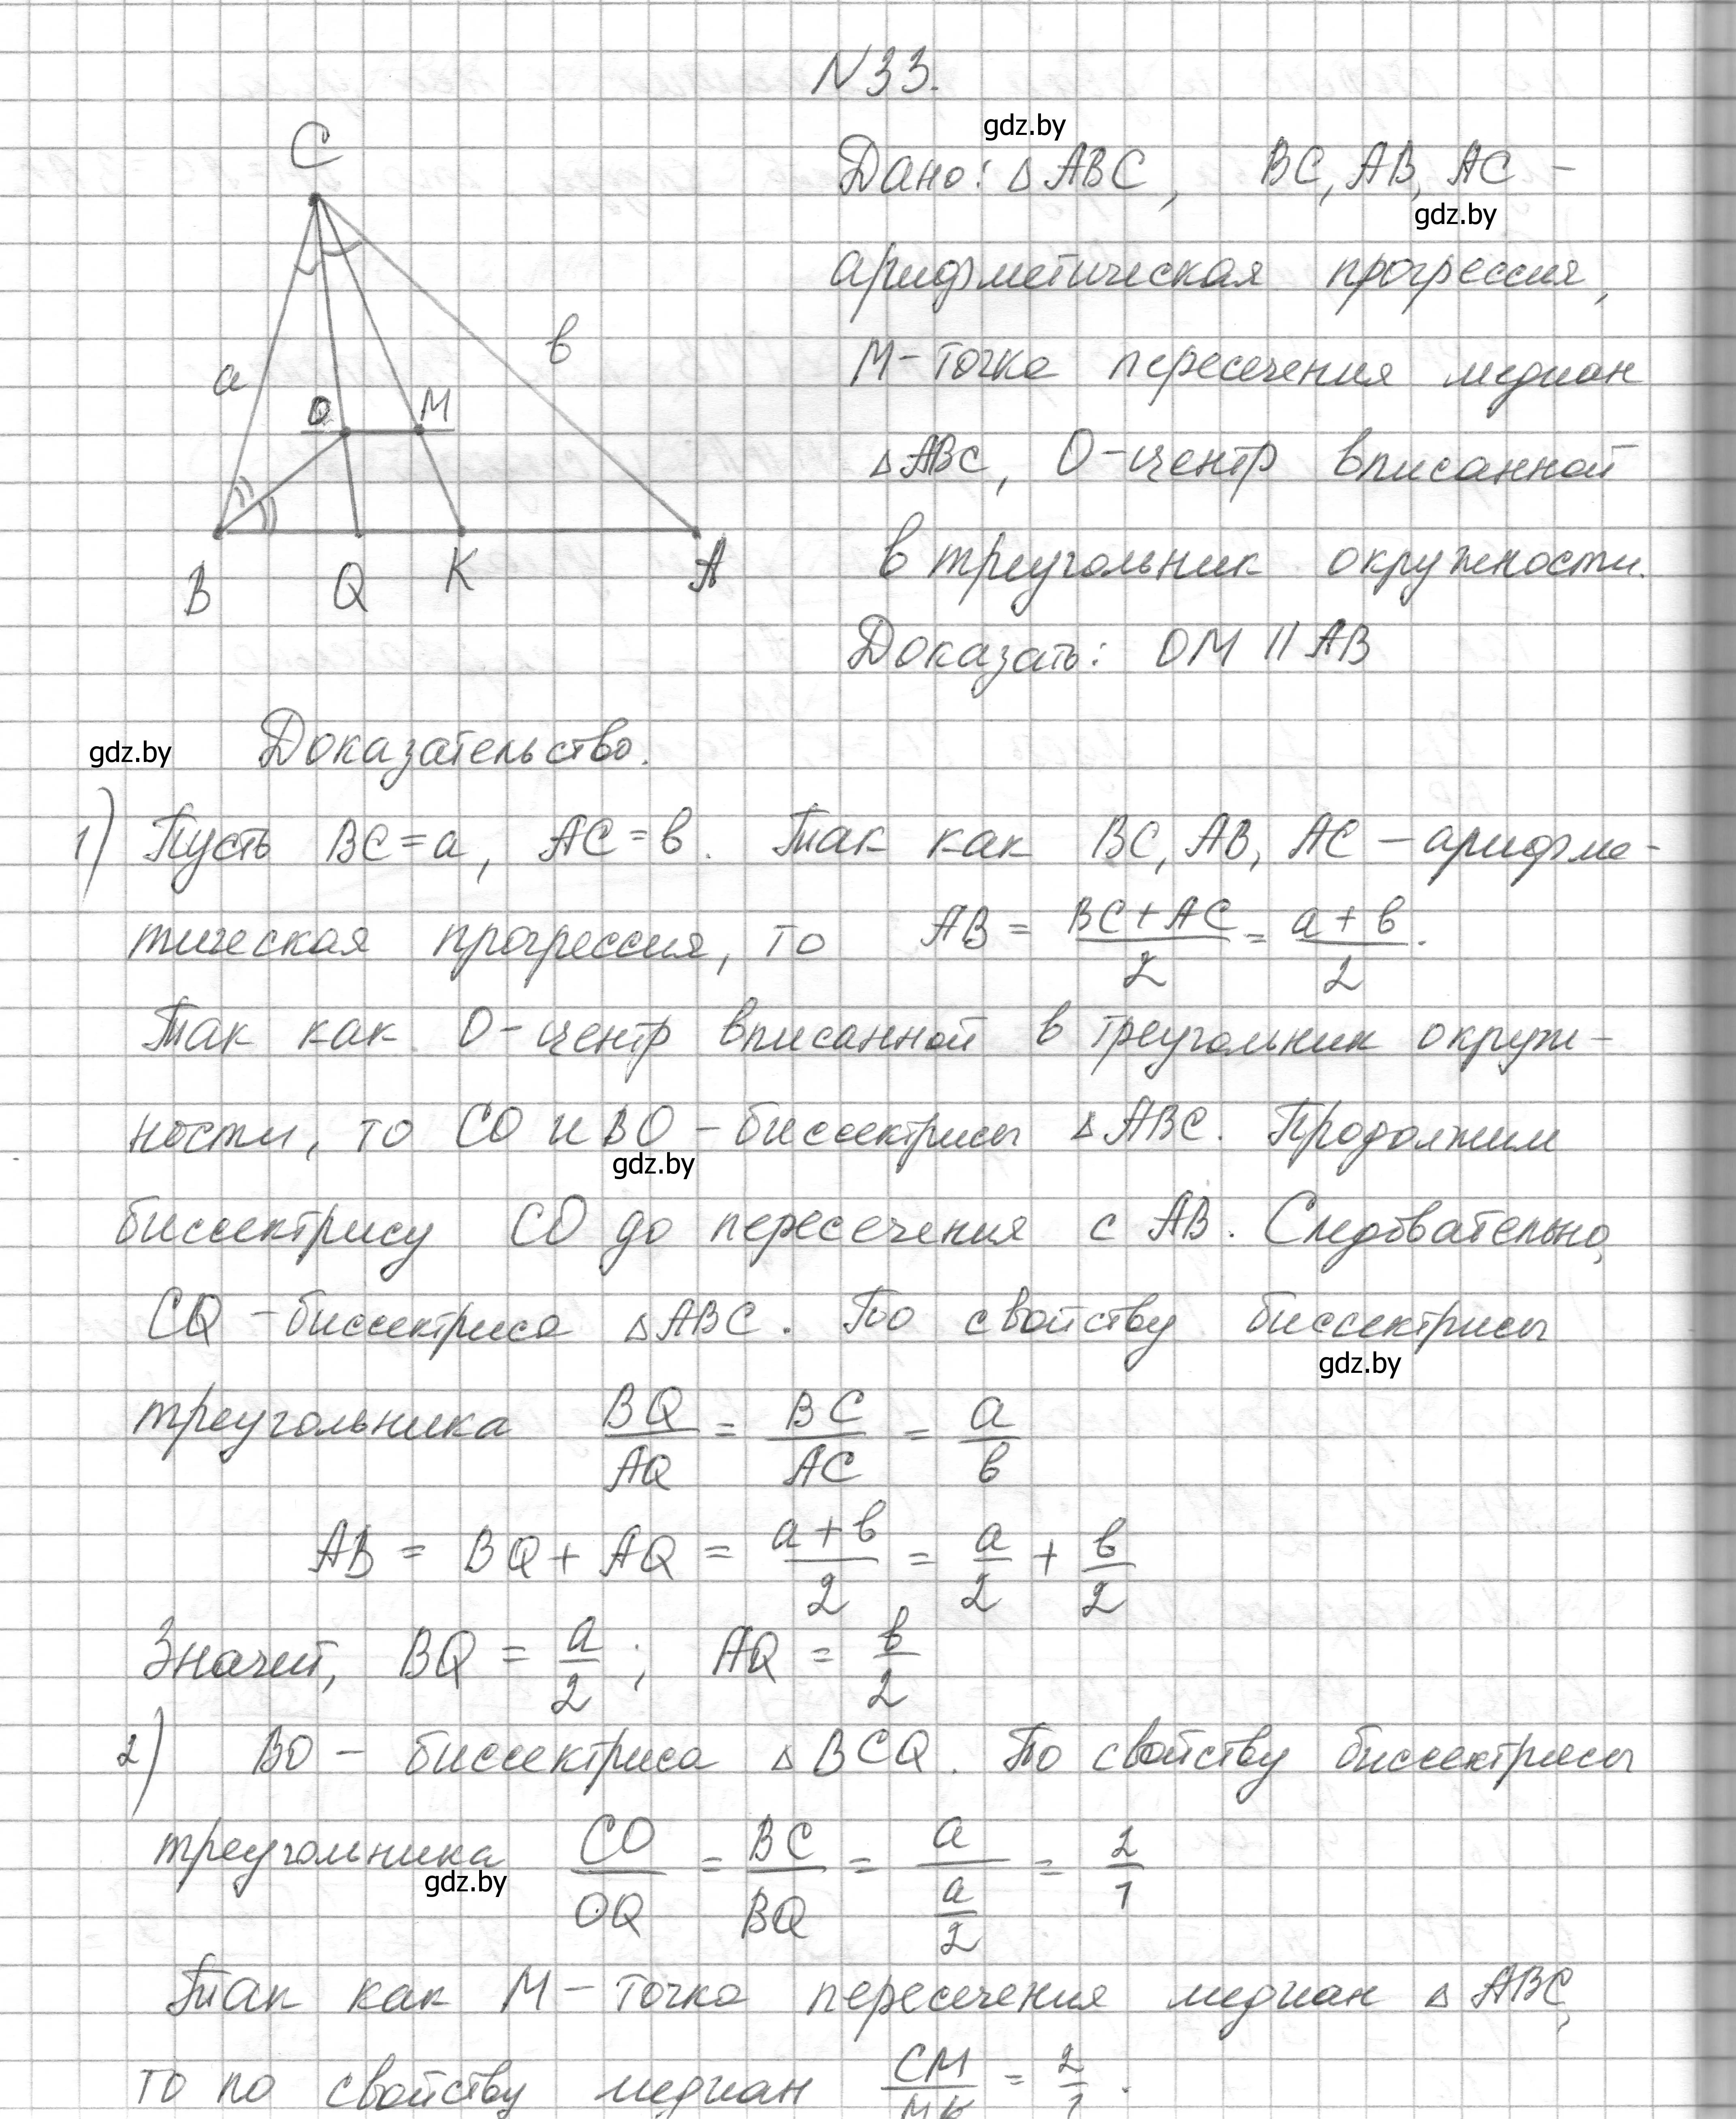 N33.
gdz.by
C
Дано: △ABC, BC, AB, AC –
gdz.by
арифметическая прогрессия,
в
M - точка пересечения медиан
a
O M
△ABC, O - центр вписанной
в треугольник окружности.
B Q K A
Доказать: OM || AB
gdz.by Доказательство.
1) Пусть BC = a, AC = в. Так как BC, AB, AC – арифме-
тическая прогрессия, то AB = (BC + AC)/2 = (a + в)/2.
Так как O - центр вписанной в треугольник окруж-
ности, то CO и BO – биссектрисы △ABC. Продолжим
gdz.by
биссектрису CO до пересечения с AB. Следовательно,
CQ – биссектриса △ABC. По свойству биссектрисы
gdz.by
треугольника BQ/AQ = BC/AC = a/в
AB = BQ + AQ = (a + в)/2 = a/2 + в/2
Значит, BQ = a/2; AQ = в/2
2) BO – биссектриса △BCQ. По свойству биссектрисы
треугольника CO/OQ = BC/BQ = a/(a/2) = 2/1
gdz.by
Так как M – точка пересечения медиан △ABC,
то по свойству медиан CM/MK = 2/1.